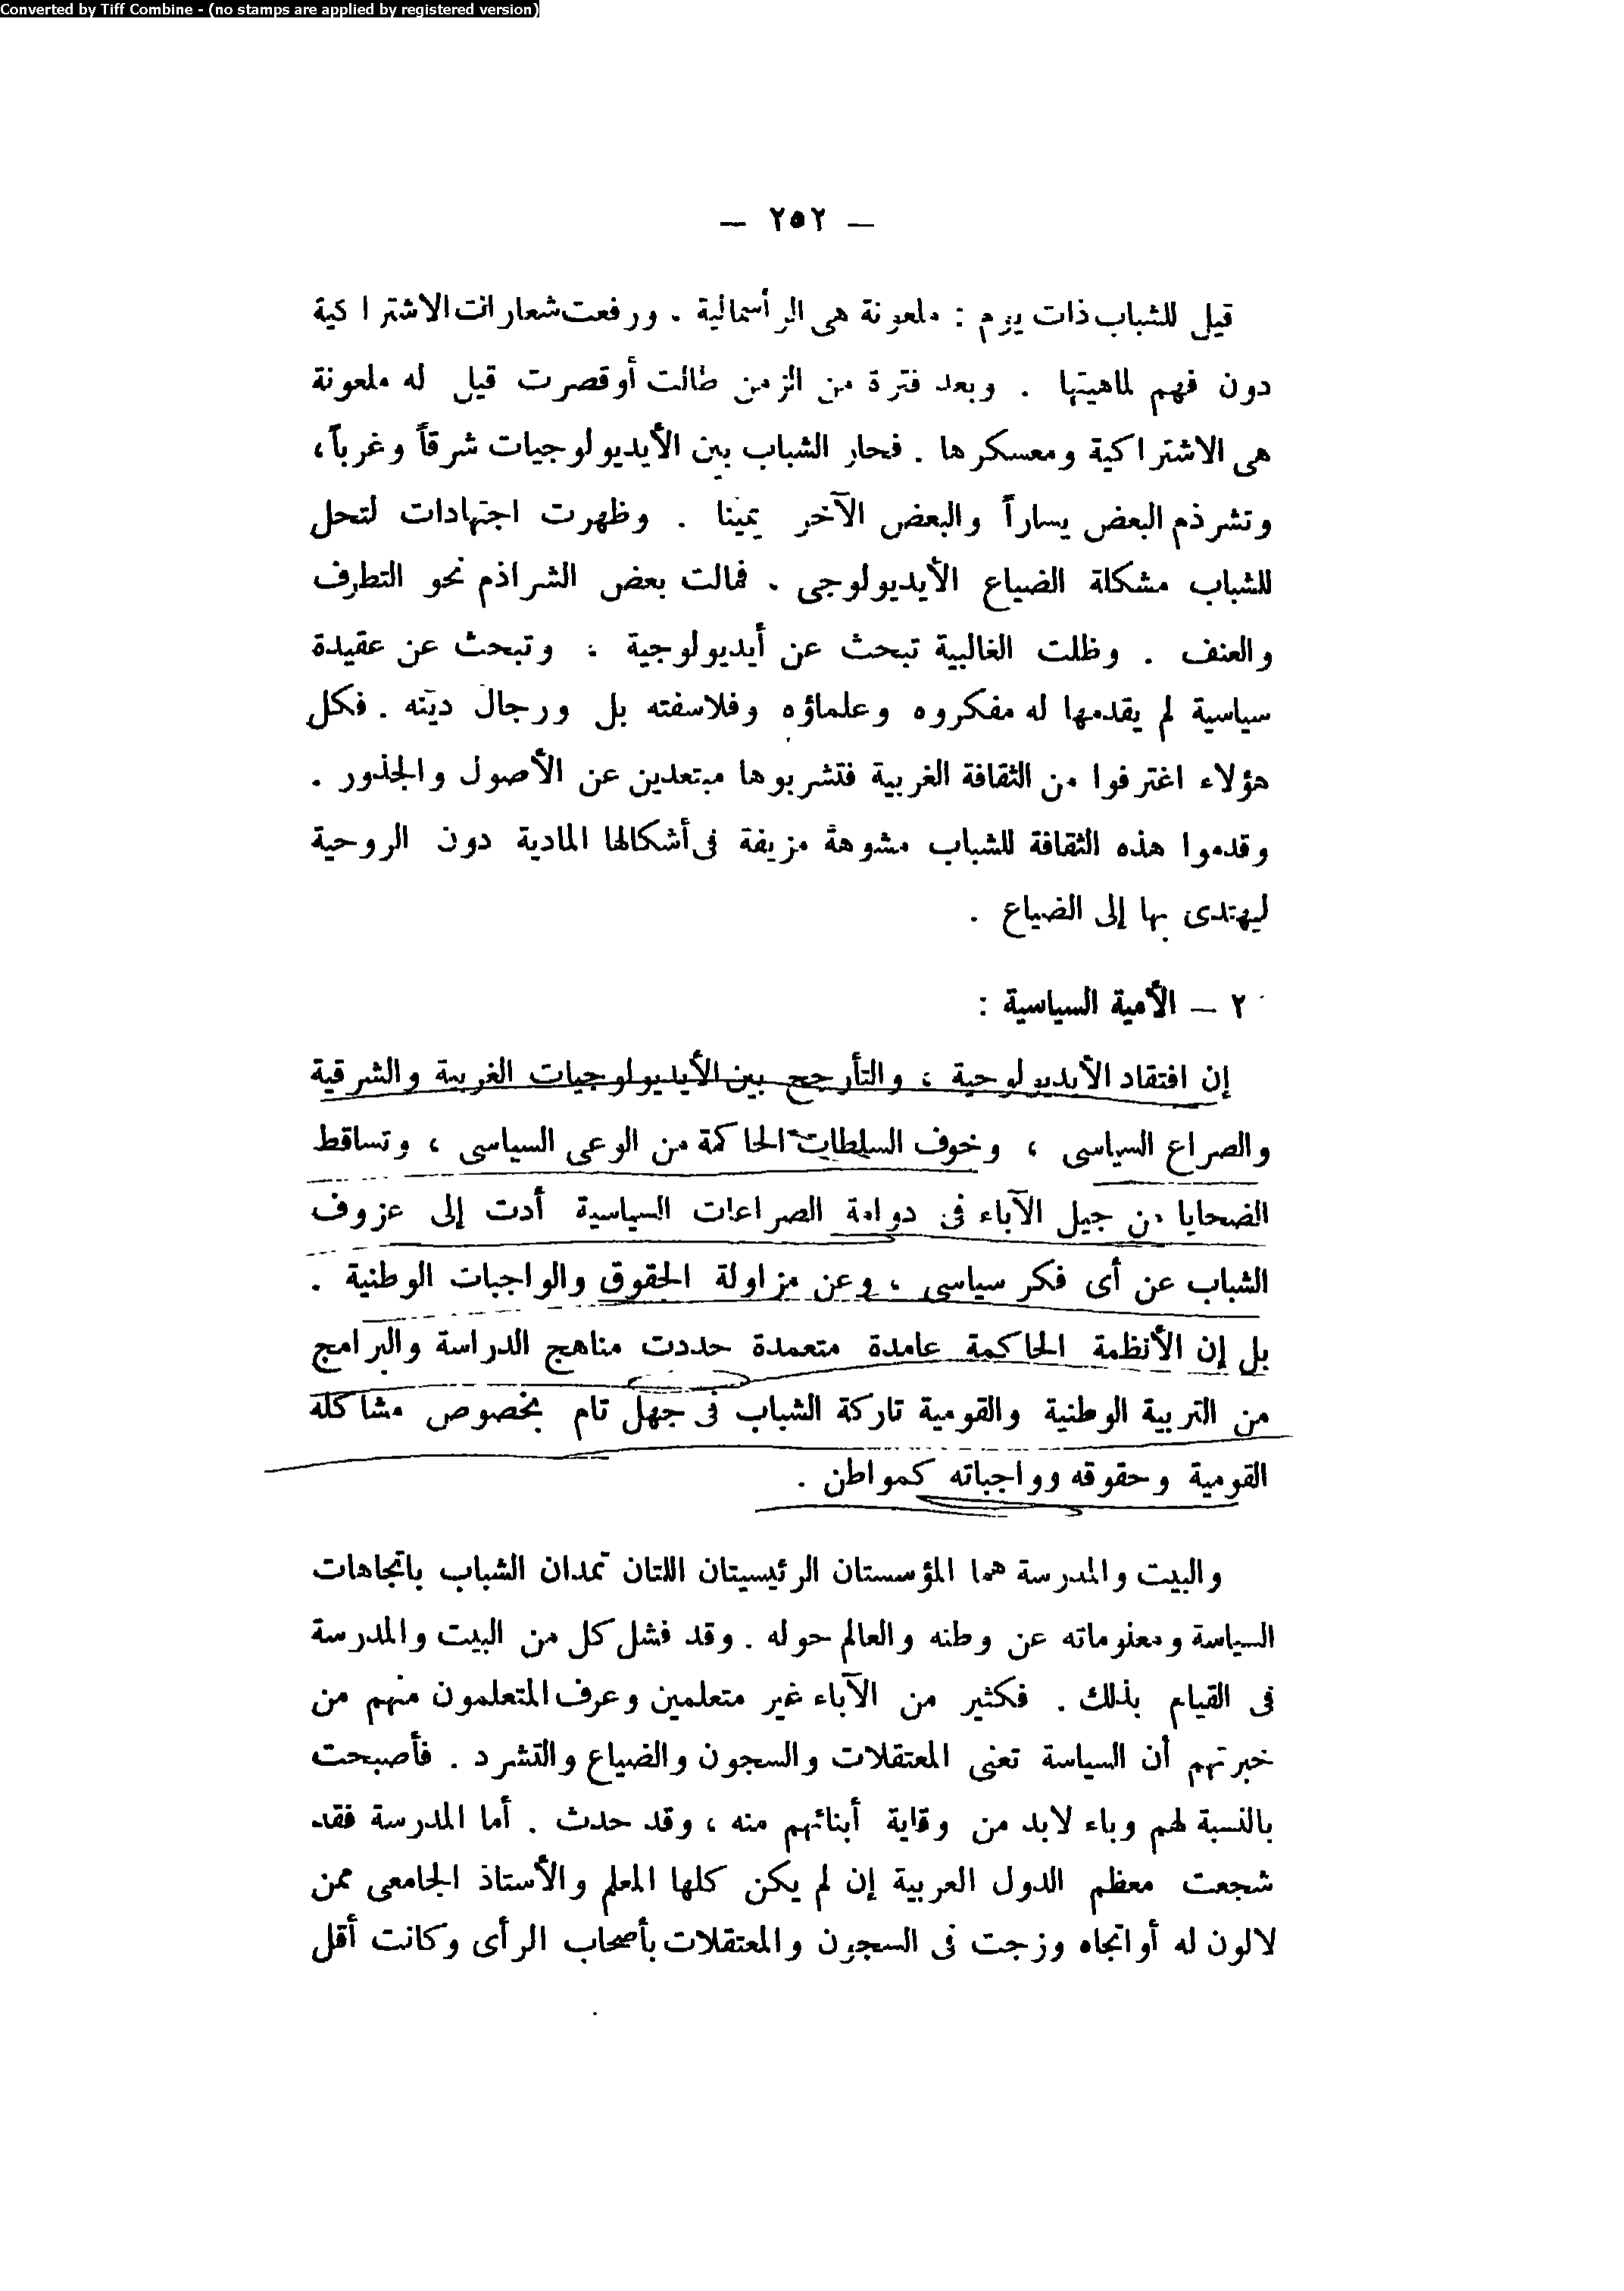 Converted by Tiff Combine - (no stamps are applied by registered version)
— ٢٥٢ —
قيل للشباب ذات يوم : ملعونة هى الرأسمالية . ورفعت شعارات الاشتراكية
دون فهم لماهيتها . وبعد فترة من الزمن طالت أو قصرت قيل له ملعونة
هى الاشتراكية ومعسكرها . فحار الشباب بين الأيديولوجيات شرقاً وغرباً ،
وتشرذم البعض يساراً والبعض الآخر يمينا . وظهرت اجتهادات لتحل
للشباب مشكلة الضياع الأيديولوجى . فمالت بعض الشراذم نحو التطرف
والعنف . وظلت الغالبية تبحث عن أيديولوجية ، وتبحث عن عقيدة
سياسية لم يقدمها له مفكروه وعلماؤه وفلاسفته بل ورجال دينه . فكل
هؤلاء اغترفوا من الثقافة الغربية فتشربوها مبتعدين عن الأصول والجذور .
وقدموا هذه الثقافة للشباب مشوهة مزيفة فى أشكالها المادية دون الروحية
ليهتدى بها إلى الضياع .
٢ — الأمية السياسية :
إن افتقاد الأيديولوجية ، والتأرجح بين الأيديولوجيات الغربية والشرقية
والصراع السياسى ، وخوف السلطات الحاكمة من الوعى السياسى ، وتساقط
الضحايا من جيل الآباء فى دوامة الصراعات السياسية أدت إلى عزوف
الشباب عن أى فكر سياسى ، وعن مزاولة الحقوق والواجبات الوطنية .
بل إن الأنظمة الحاكمة عامدة متعمدة حددت مناهج الدراسة والبرامج
من التربية الوطنية والقومية تاركة الشباب فى جهل تام بخصوص مشاكله
القومية وحقوقه وواجباته كمواطن .
والبيت والمدرسة هما المؤسستان الرئيسيتان اللتان تمدان الشباب باتجاهات
السياسة ومعلوماته عن وطنه والعالم حوله . وقد فشل كل من البيت والمدرسة
فى القيام بذلك . فكثير من الآباء غير متعلمين وعرف المتعلمون منهم من
خبرتهم أن السياسة تعنى المعتقلات والسجون والضياع والتشرد . فأصبحت
بالنسبة لهم وباء لابد من وقاية أبنائهم منه ، وقد حدث . أما المدرسة فقد
شجعت معظم الدول العربية إن لم يكن كلها المعلم والأستاذ الجامعى ممن
لالون له أو اتجاه وزجت فى السجون والمعتقلات بأصحاب الرأى وكانت أقل